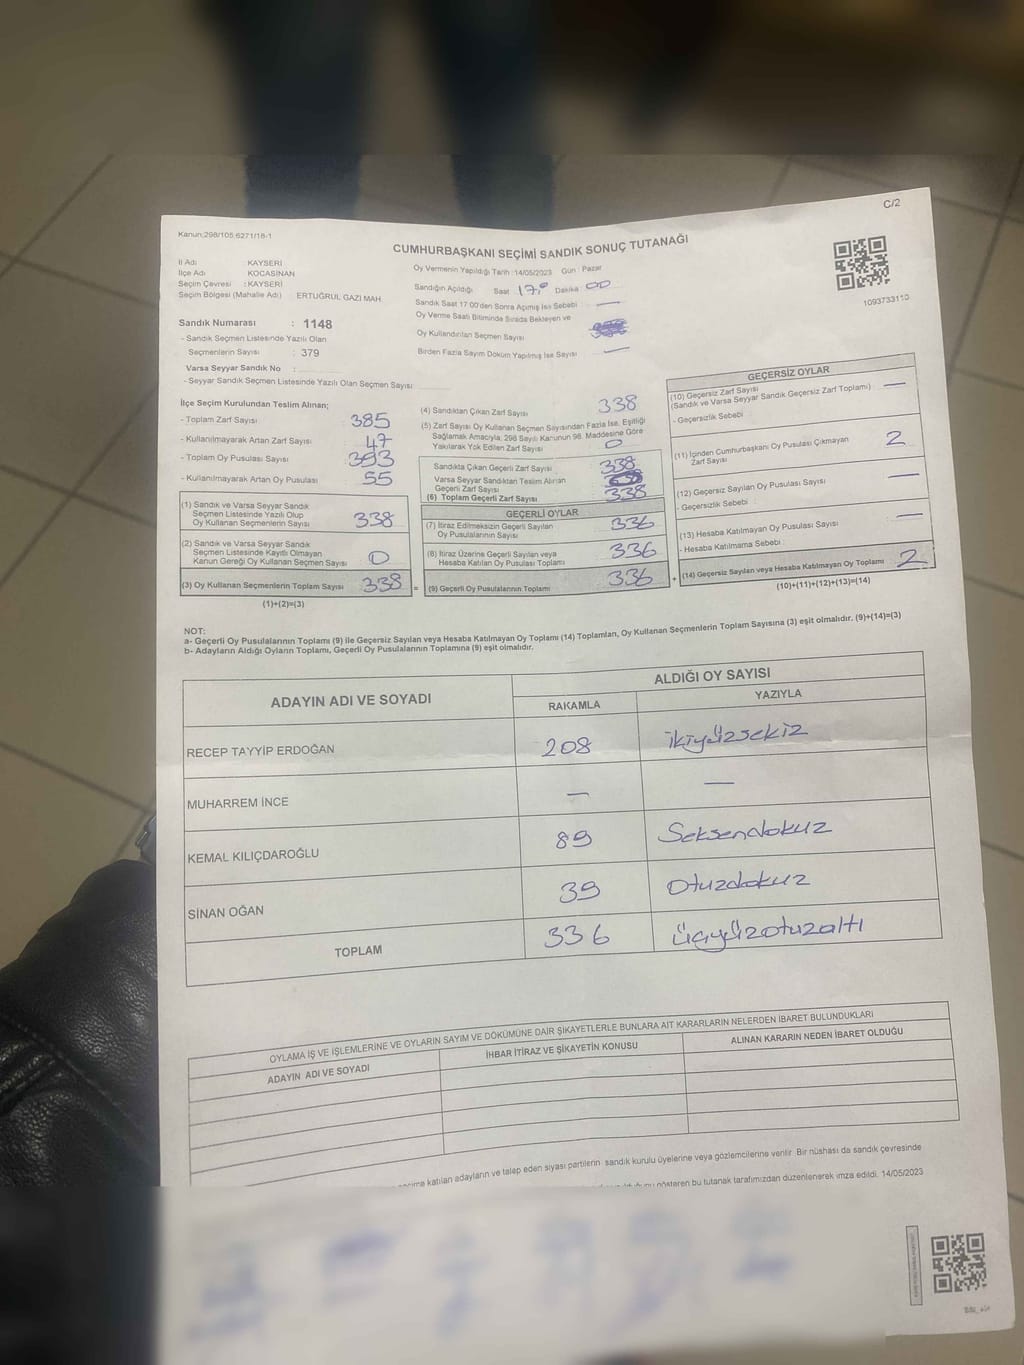 C/2
Kanun:298/105 6271/18-1
CUMHURBAŞKANI SEÇİMİ SANDIK SONUÇ TUTANAĞI
İl Adı KAYSERİ
İlçe Adı KOCASİNAN
Seçim Çevresi : KAYSERİ
Seçim Bölgesi (Mahalle Adı) ERTUĞRUL GAZİ MAH.
Sandık Numarası : 1148
- Sandık Seçmen Listesinde Yazılı Olan
Seçmenlerin Sayısı : 379
Varsa Seyyar Sandık No :
- Seyyar Sandık Seçmen Listesinde Yazılı Olan Seçmen Sayısı
Oy Vermenin Yapıldığı Tarih : 14/05/2023 Gün : Pazar
Sandığın Açıldığı Saat 17.0 Dakika 00
Sandık Saat 17:00'den Sonra Açımış İse Sebebi —
Oy Verme Saati Bitiminde Sırada Bekleyen ve
Oy Kullandırılan Seçmen Sayısı
Birden Fazla Sayım Döküm Yapılmış İse Sayısı —
1093733110
İlçe Seçim Kurulundan Teslim Alınan;
- Toplam Zarf Sayısı 385
- Kullanılmayarak Artan Zarf Sayısı 47
- Toplam Oy Pusulası Sayısı 393
- Kullanılmayarak Artan Oy Pusulası 55
(1) Sandık ve Varsa Seyyar Sandık
Seçmen Listesinde Yazılı Olup
Oy Kullanan Seçmenlerin Sayısı 338
(2) Sandık ve Varsa Seyyar Sandık
Seçmen Listesinde Kayıtlı Olmayan
Kanun Gereği Oy Kullanan Seçmen Sayısı 0
(3) Oy Kullanan Seçmenlerin Toplam Sayısı 338 =
(1)+(2)=(3)
(4) Sandıktan Çıkan Zarf Sayısı 338
(5) Zarf Sayısı Oy Kullanan Seçmen Sayısından Fazla İse, Eşitliği
Sağlamak Amacıyla, 298 Sayılı Kanunun 98. Maddesine Göre
Yakılarak Yok Edilen Zarf Sayısı 0
Sandıkta Çıkan Geçerli Zarf Sayısı 338
Varsa Seyyar Sandıktan Teslim Alınan
Geçerli Zarf Sayısı
(6) Toplam Geçerli Zarf Sayısı 338
GEÇERLİ OYLAR
(7) İtiraz Edilmeksizin Geçerli Sayılan
Oy Pusulalarının Sayısı 336
(8) İtiraz Üzerine Geçerli Sayılan veya
Hesaba Katılan Oy Pusulası Toplamı 336
(9) Geçerli Oy Pusulalarının Toplamı 336 +
GEÇERSİZ OYLAR
(10) Geçersiz Zarf Sayısı
(Sandık ve Varsa Seyyar Sandık Geçersiz Zarf Toplamı) —
- Geçersizlik Sebebi :
(11) İçinden Cumhurbaşkanı Oy Pusulası Çıkmayan
Zarf Sayısı 2
(12) Geçersiz Sayılan Oy Pusulası Sayısı —
- Geçersizlik Sebebi :
(13) Hesaba Katılmayan Oy Pusulası Sayısı —
- Hesaba Katılmama Sebebi :
(14) Geçersiz Sayılan veya Hesaba Katılmayan Oy Toplamı 2
(10)+(11)+(12)+(13)=(14)
NOT:
a- Geçerli Oy Pusulalarının Toplamı (9) ile Geçersiz Sayılan veya Hesaba Katılmayan Oy Toplamı (14) Toplamları, Oy Kullanan Seçmenlerin Toplam Sayısına (3) eşit olmalıdır. (9)+(14)=(3)
b- Adayların Aldığı Oyların Toplamı, Geçerli Oy Pusulalarının Toplamına (9) eşit olmalıdır.
ADAYIN ADI VE SOYADI
ALDIĞI OY SAYISI
RAKAMLA YAZIYLA
RECEP TAYYİP ERDOĞAN 208 ikiyüzsekiz
MUHARREM İNCE — —
KEMAL KILIÇDAROĞLU 89 Seksendokuz
SİNAN OĞAN 39 Otuzdokuz
TOPLAM 336 üçyüzotuzaltı
OYLAMA İŞ VE İŞLEMLERİNE VE OYLARIN SAYIM VE DÖKÜMÜNE DAİR ŞİKAYETLERLE BUNLARA AİT KARARLARIN NELERDEN İBARET BULUNDUKLARI
ADAYIN ADI VE SOYADI İHBAR İTİRAZ VE ŞİKAYETİN KONUSU ALINAN KARARIN NEDEN İBARET OLDUĞU
katılan adayların ve talep eden siyasi partilerin sandık kurulu üyelerine veya gözlemcilerine verilir. Bir nüshası da sandık çevresinde
gösteren bu tutanak tarafımızdan düzenlenerek imza edildi. 14/05/2023